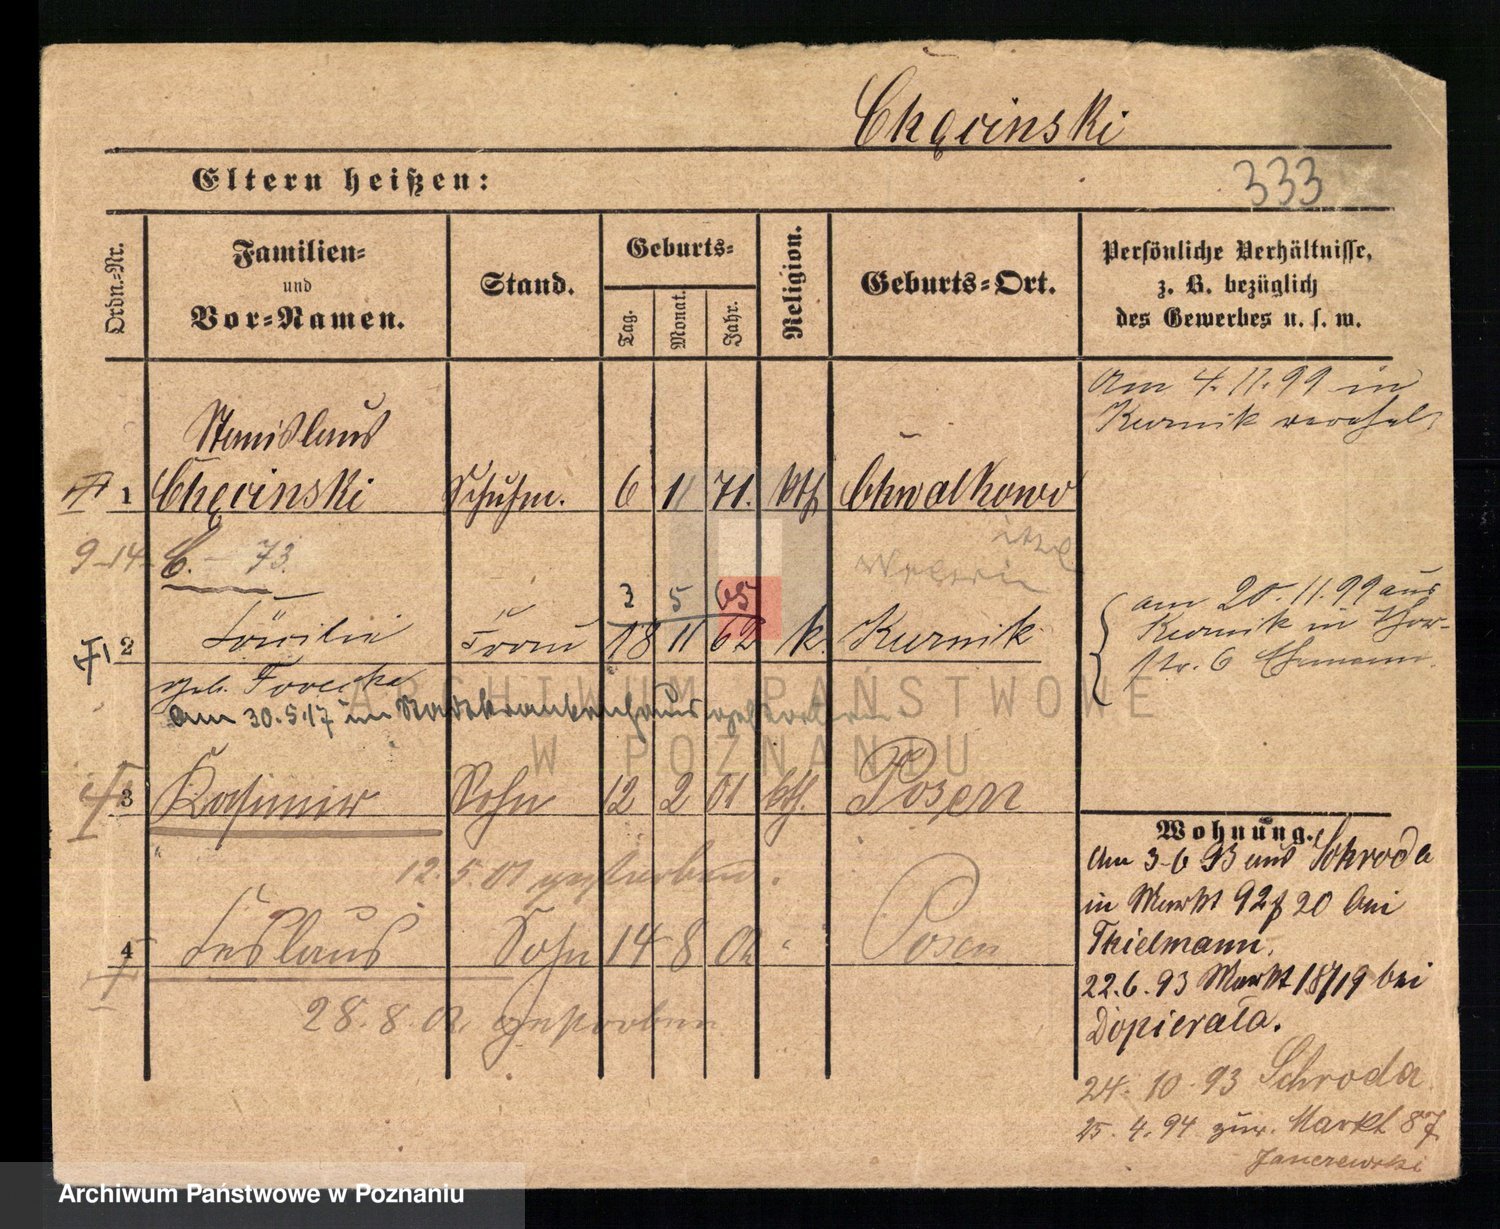 Chęcinski
333
Eltern heißen:
Ordn.=Nr.
Familien=
und
Vor=Namen.
Stand.
Geburts=
Tag.
Monat.
Jahr.
Religion.
Geburts=Ort.
Persönliche Verhältnisse,
z. B. bezüglich
des Gewerbes u. s. w.
Am 4.11.99 in
Kurnik
Stanislaus
1 Chęcinski Schuhm. 6 11 71. kth Chwalkowo
9-14- C. - 73.
3 5 65
2 Cäcilie Frau 18 11 62 k. Kurnik
geb.
am 30.5.17 im Stadtkrankenhaus gestorben
am 20.11.99 aus
Kurnik in Thor-
str. 6 Ehemann.
3 Kasimir Sohn 12 2 01 kth. Posen
12.5.01 gestorben.
4 Ceslaus Sohn 14 8 02 " Posen
28.8.02 gestorben
Wohnung.
Am 3-6 93 aus Schroda
in Markt 92 f 20 bei
Thielmann.
22.6.93 Markt 18/19 bei
Dopierała.
24.10.93 Schroda
25.4.94 zur. Markt 87
Janczewski
ARCHIWUM PAŃSTWOWE
W POZNANIU
Archiwum Państwowe w Poznaniu